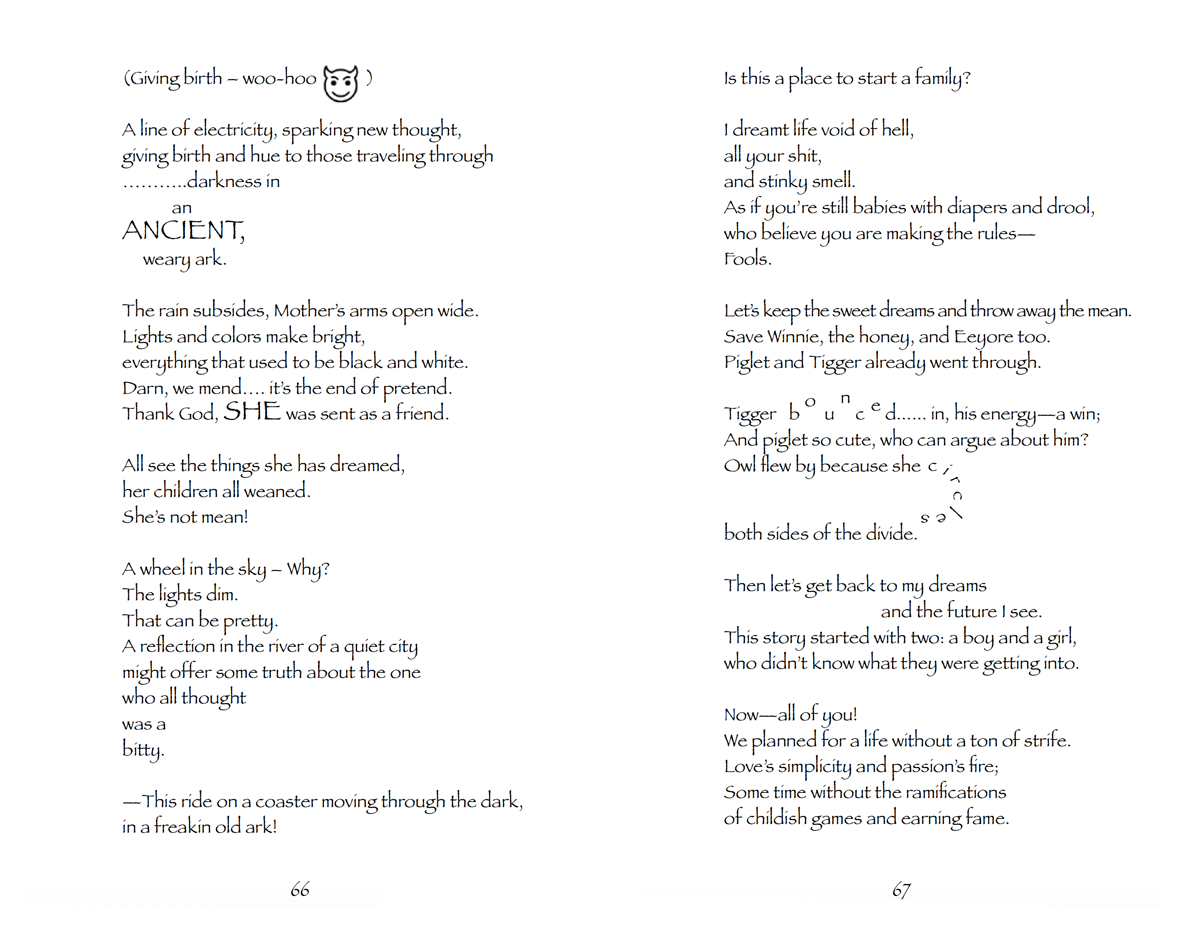 (Giving birth – woo-hoo 😈 )
A line of electricity, sparking new thought,
giving birth and hue to those traveling through
………..darkness in
an
ANCIENT,
weary ark.
The rain subsides, Mother's arms open wide.
Lights and colors make bright,
everything that used to be black and white.
Darn, we mend…. it's the end of pretend.
Thank God, SHE was sent as a friend.
All see the things she has dreamed,
her children all weaned.
She's not mean!
A wheel in the sky – Why?
The lights dim.
That can be pretty.
A reflection in the river of a quiet city
might offer some truth about the one
who all thought
was a
bitty.
—This ride on a coaster moving through the dark,
in a freakin old ark!
66
Is this a place to start a family?
I dreamt life void of hell,
all your shit,
and stinky smell.
As if you're still babies with diapers and drool,
who believe you are making the rules—
Fools.
Let's keep the sweet dreams and throw away the mean.
Save Winnie, the honey, and Eeyore too.
Piglet and Tigger already went through.
Tigger bounced…... in, his energy—a win;
And piglet so cute, who can argue about him?
Owl flew by because she circles
both sides of the divide.
Then let's get back to my dreams
and the future I see.
This story started with two: a boy and a girl,
who didn't know what they were getting into.
Now—all of you!
We planned for a life without a ton of strife.
Love's simplicity and passion's fire;
Some time without the ramifications
of childish games and earning fame.
67